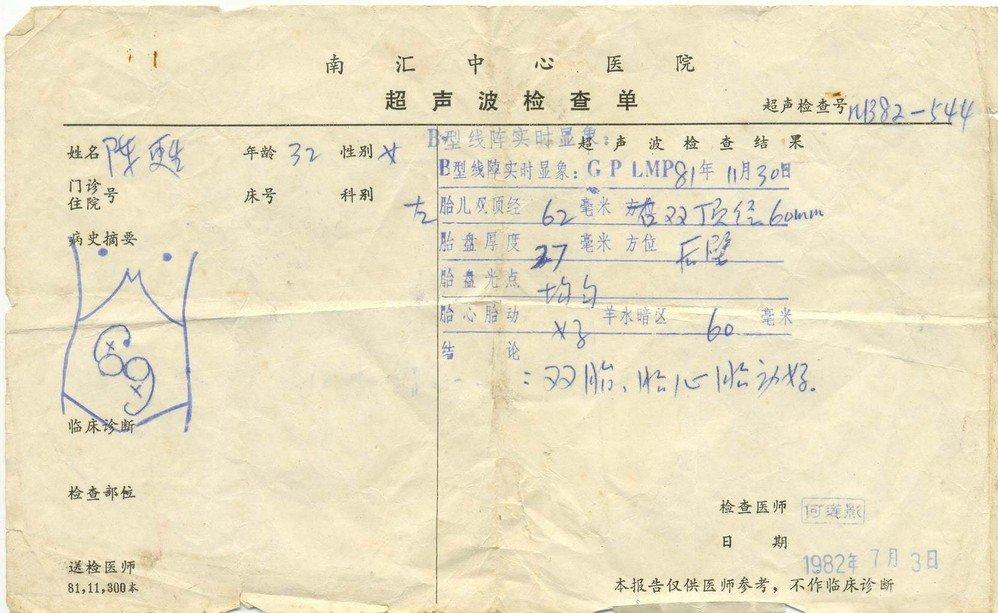 南汇中心医院
超声波检查单
超声检查号 M382-544
姓名 陈 年龄 32 性别 女
门诊
住院 号 床号 科别
病史摘要
临床诊断
检查部位
送检医师
81,11,300本
B型线阵实时显象:
超声波检查结果
B型线阵实时显象: G P LMP 81年11月30日
左 胎儿双顶经 62 毫米 方位 右双顶经60mm
胎盘厚度 27 毫米 方位 后壁
胎盘光点 均匀
胎心胎动 好 羊水暗区 60 毫米
结论
:双胎、胎心胎动好.
检查医师 何莲影
日期 1982年7月3日
本报告仅供医师参考,不作临床诊断